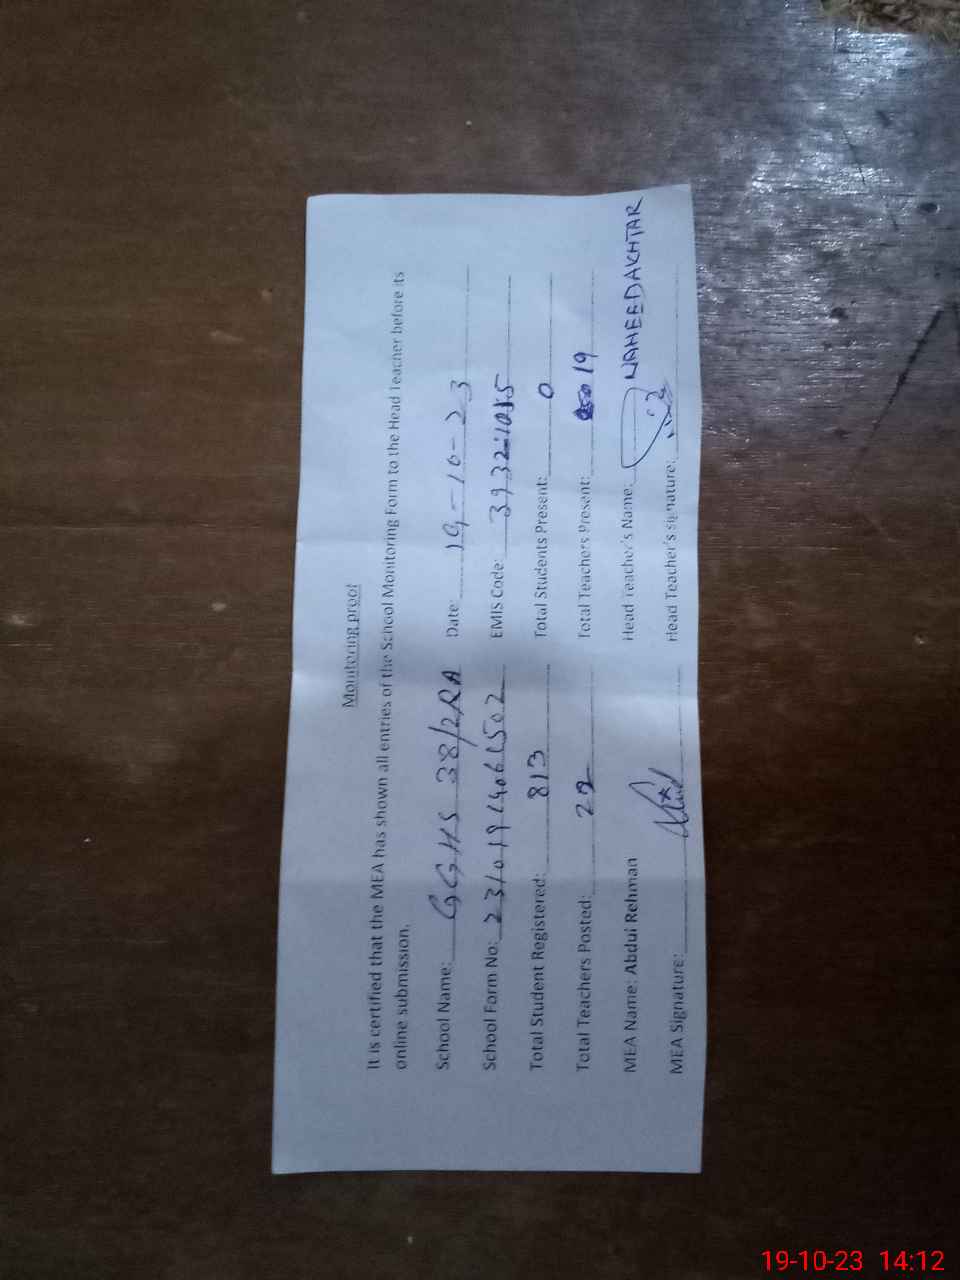 Monitoring proof
It is certified that the MEA has shown all entries of the School Monitoring Form to the Head Teacher before its
online submission.
School Name: GGHS 38/2RA Date: 19-10-23
School Form No: EMIS Code:
Total Student Registered: 813 Total Students Present: 0
Total Teachers Posted: 22 Total Teachers Present: 19
MEA Name: Abdul Rehman Head Teacher's Name: NAHEED AKHTAR
MEA Signature: Head Teacher's signature:
19-10-23 14:12